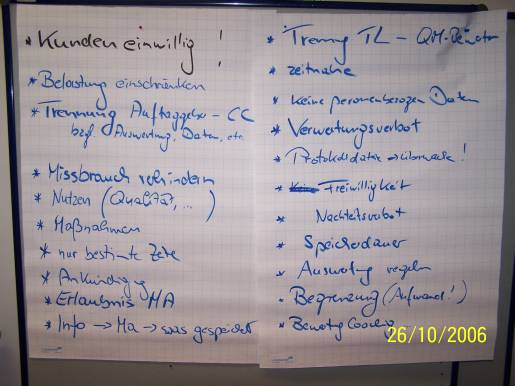 * Kunden einwillig !
* Belastung einschränken
* Trennung Auftaggeber - CC
bzgl. Auswertung, Daten, etc
* Missbrauch verhindern
* Nutzen (Qualität, ...)
* Maßnahmen
* nur bestimte Zete
* Ankündigg
* Erlaubnis MA
* Info → Ma → was gespeichert
* Trennung TL - QM-
* zeitnahe
* keine personenbezogen Daten
* Verwertungsverbot
* Protokolldaten → überwach!
* Freiwilligkeit
* Nachteilsverbot
* Speicherdauer
* Auswertung regeln
* Begrenzung (Aufwand!)
* Coaching
26/10/2006